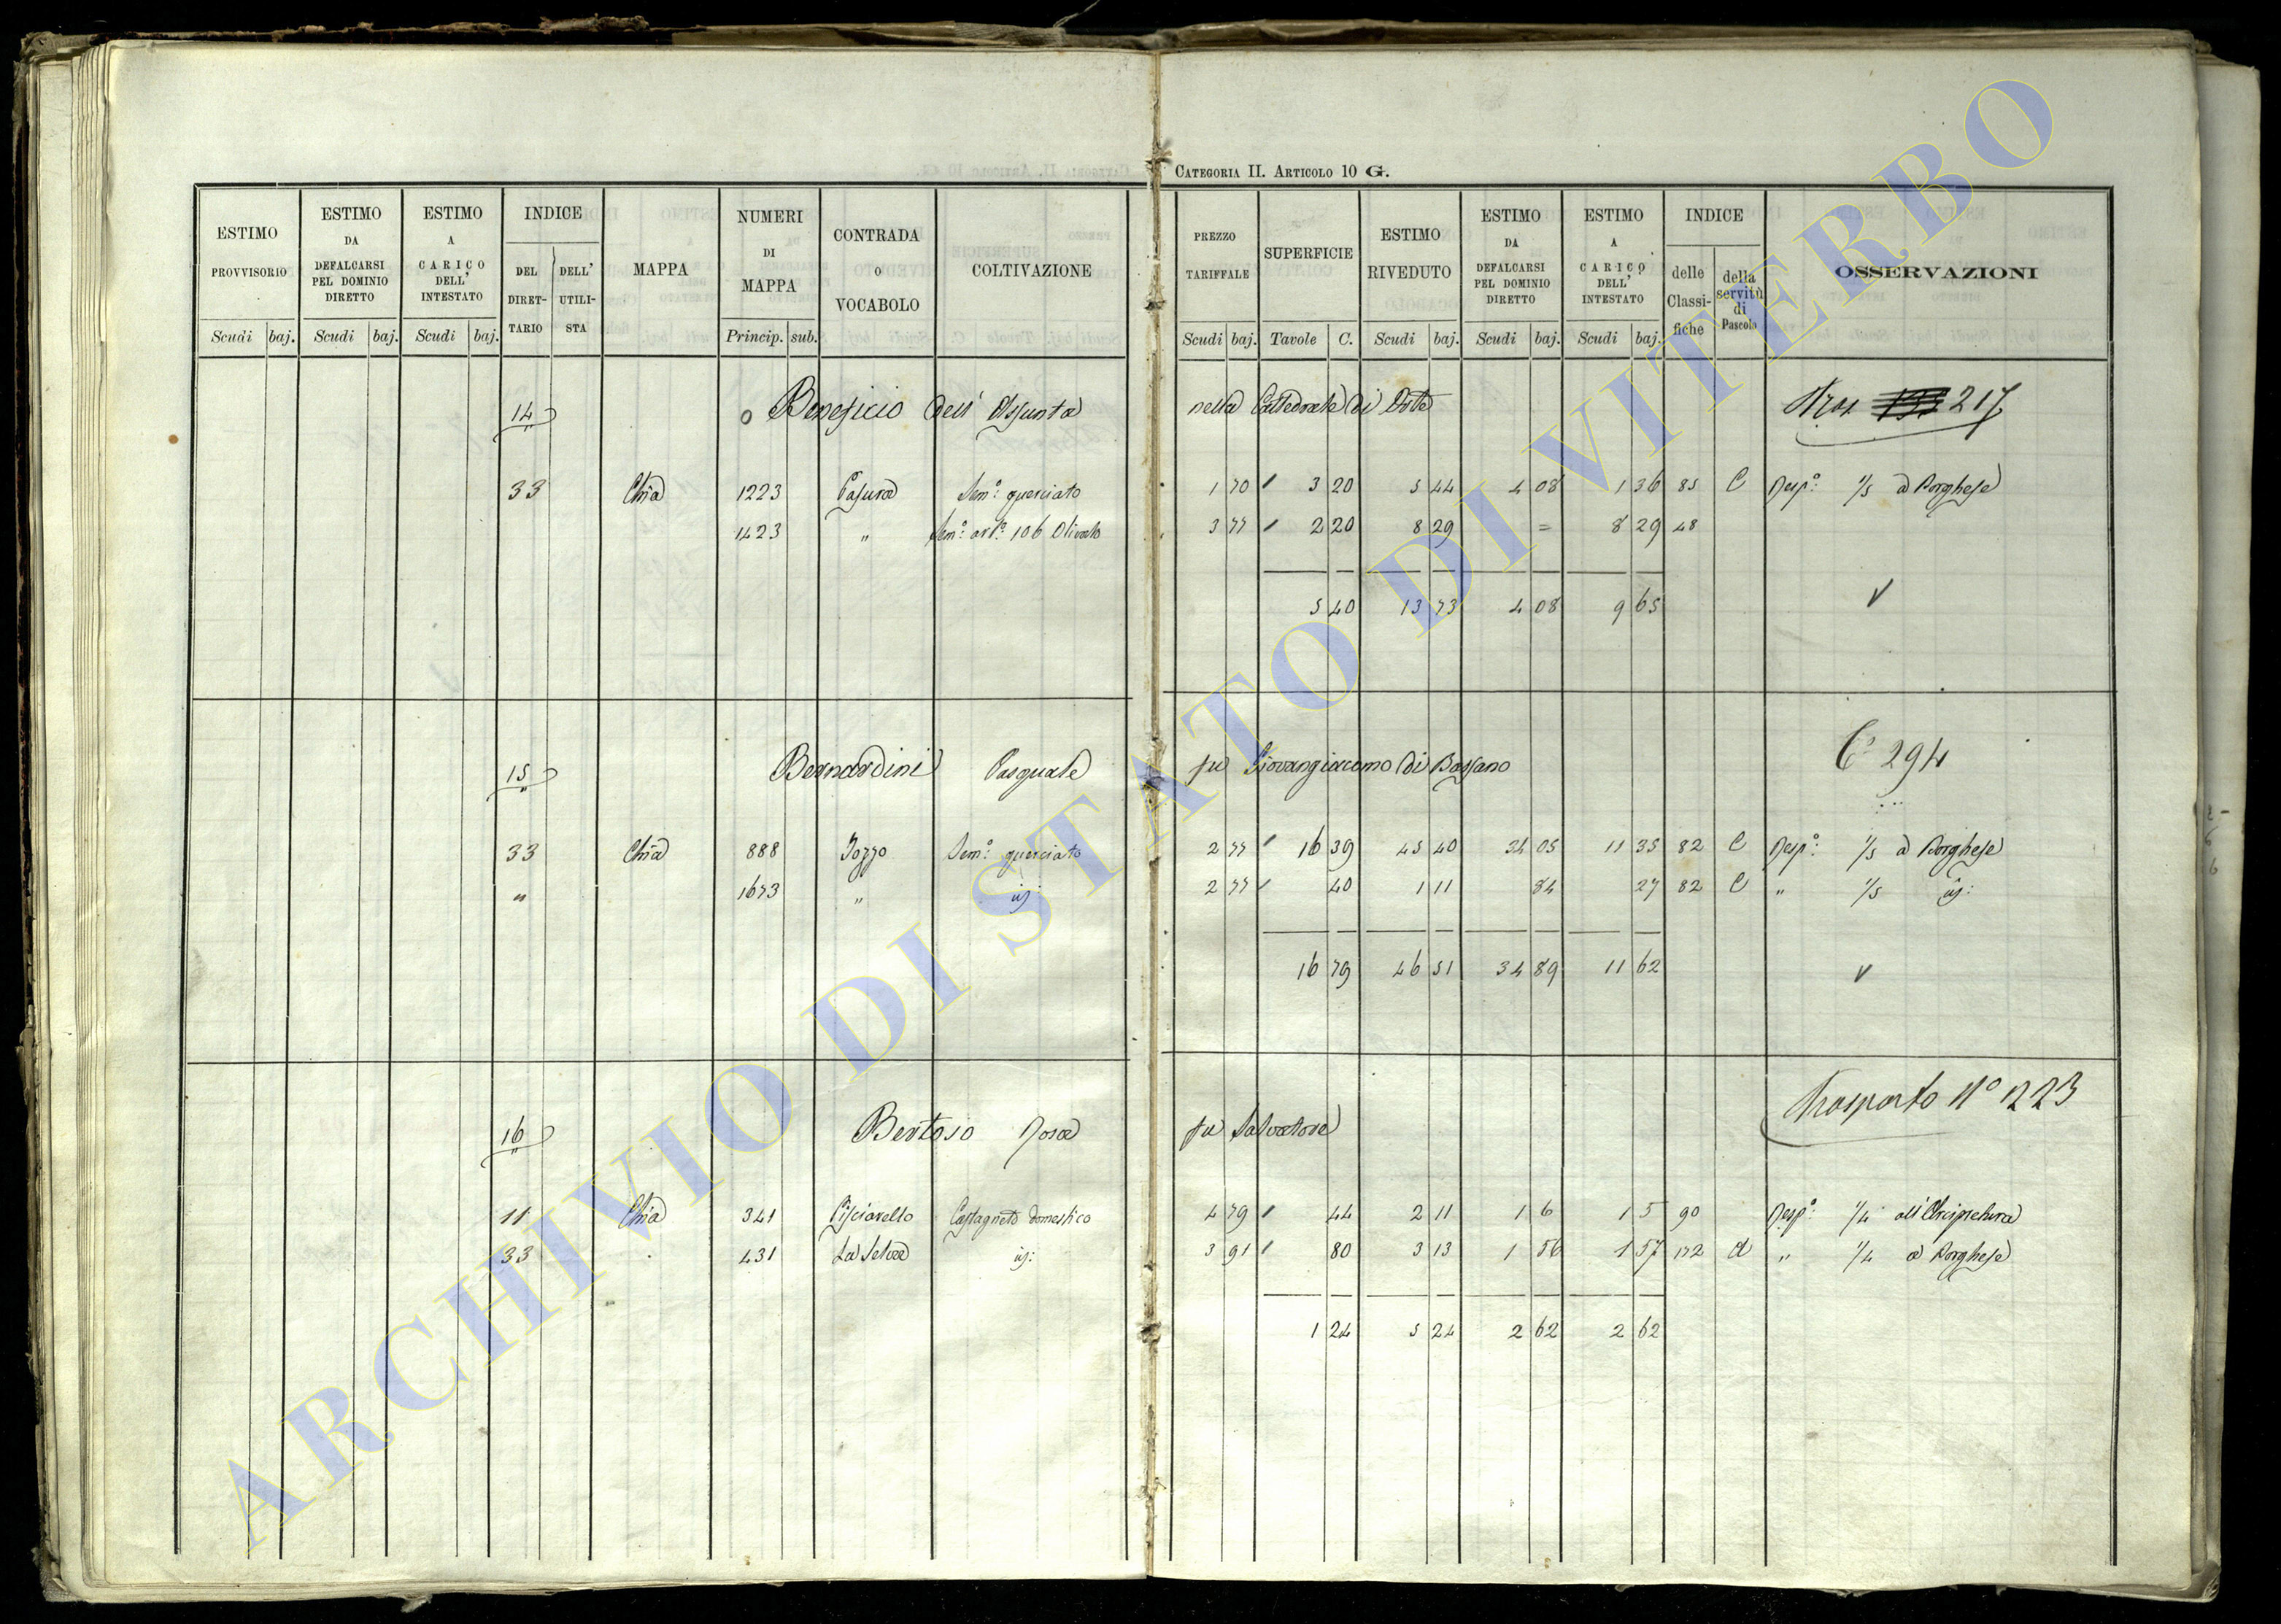 CATEGORIA II. ARTICOLO 10 G.
ESTIMO PROVVISORIO Scudi baj.
ESTIMO DA DEFALCARSI PEL DOMINIO DIRETTO Scudi baj.
ESTIMO A CARICO DELL' INTESTATO Scudi baj.
INDICE DEL DIRETTARIO DELL' UTILISTA
MAPPA
NUMERI DI MAPPA Princip. sub.
CONTRADA O VOCABOLO
COLTIVAZIONE
PREZZO TARIFFALE Scudi baj.
SUPERFICIE Tavole C.
ESTIMO RIVEDUTO Scudi baj.
ESTIMO DA DEFALCARSI PEL DOMINIO DIRETTO Scudi baj.
ESTIMO A CARICO DELL' INTESTATO Scudi baj.
INDICE delle Classifiche della servitù di Pascolo
OSSERVAZIONI
14 Beneficio dell' Assunta nella Cattedrale di Orte 217
33 Chia 1223 Casura Sem:º querciato 1 70 3 20 5 44 4 08 1 36 85 C Resp:º 1/5 a Borghese
1423 " Sem:º art:º 106 Olivato 3 77 2 20 8 29 = 8 29 48
5 40 13 73 4 08 9 65
15 Bernardini Pasquale fu Giovangiacomo di Bassano 294
33 Chia 888 Pozzo Sem:º querciato 2 77 16 39 45 40 34 05 11 35 82 C Resp:º 1/5 a Borghese
" 1673 " id: 2 77 40 1 11 84 27 82 C " 1/5 id:
16 79 46 51 34 89 11 62
16 Bertoso Rosa fu Salvatore Trasporto Nº 223
11 Chia 341 Pisciarello Castagneto domestico 4 79 44 2 11 1 6 1 5 90 Resp:º 1/4 all'Arcipretura
33 431 La Selva id: 3 91 80 3 13 1 56 1 57 172 A " 1/4 a Borghese
1 24 5 24 2 62 2 62
ARCHIVIO DI STATO DI VITERBO